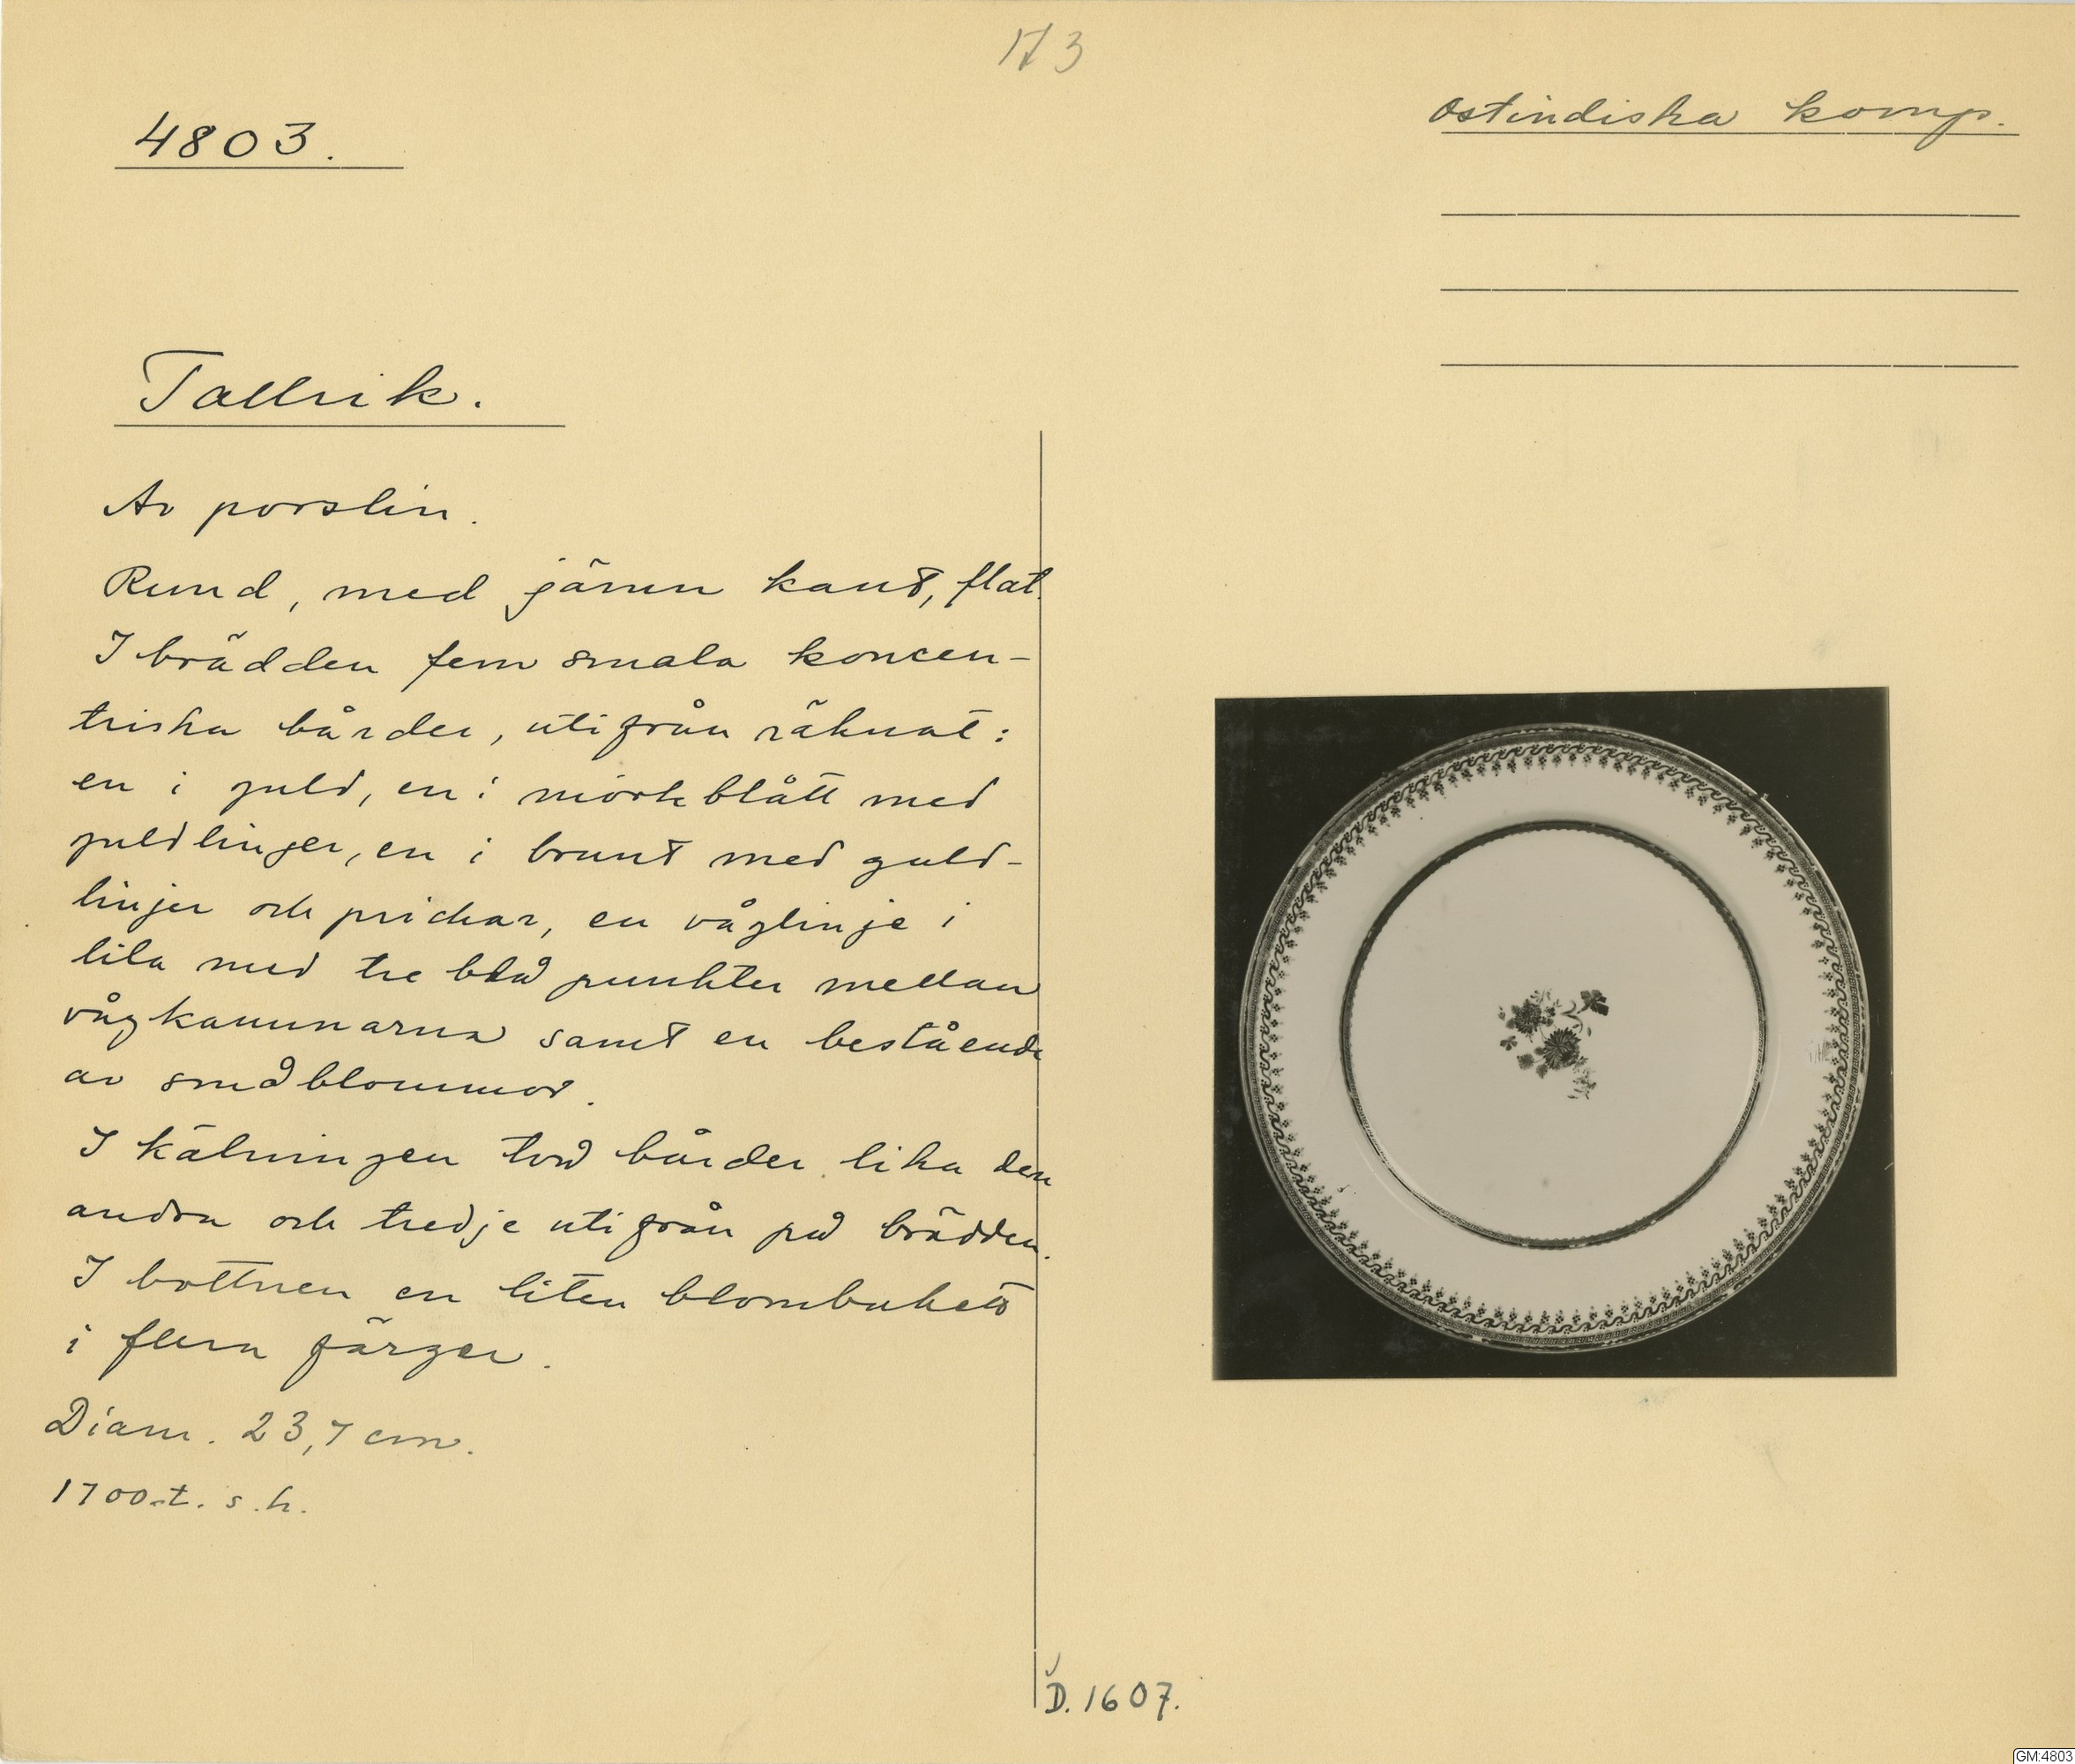 173
4803.
Ostindiska komp.
Tallrik.
Av porslin.
Rund, med jämn kant, flat.
I brädden fem smala koncen-
triska bårder, utifrån räknat:
en i guld, en i mörkblått med
guldlinjer, en i brunt med guld-
linjer och prickar, en våglinje i
lila med tre blå punkter mellan
vågkammarna samt en bestående
av småblommor.
I kälningen två bårder lika den
andra och tredje utifrån på brädden.
I bottnen en liten blombukett
i flera färger.
Diam. 23,7 cm.
1700-t. s.h.
D. 1607.
GM:4803